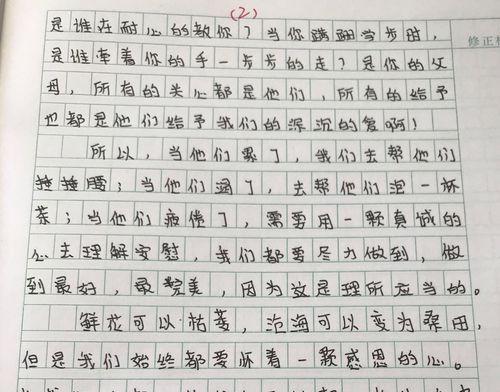 (2)
是谁在耐心的教你？当你蹒跚学步时，
修正
是谁牵着你的手一步步的走？是你的父
母，所有的关心都是他们，所有的给予
也都是他们给予我们的深沉的爱啊！
所以，当他们累了，我们去帮他们
捶捶腰；当他们渴了，去帮他们泡一杯
茶；当他们疲倦了，需要用一颗真诚的
心去理解安慰，我们都要尽力做到，做
到最好，最完美，因为这是理所应当的。
鲜花可以枯萎，沧海可以变为桑田，
但是我们始终都要怀着一颗感恩的心。